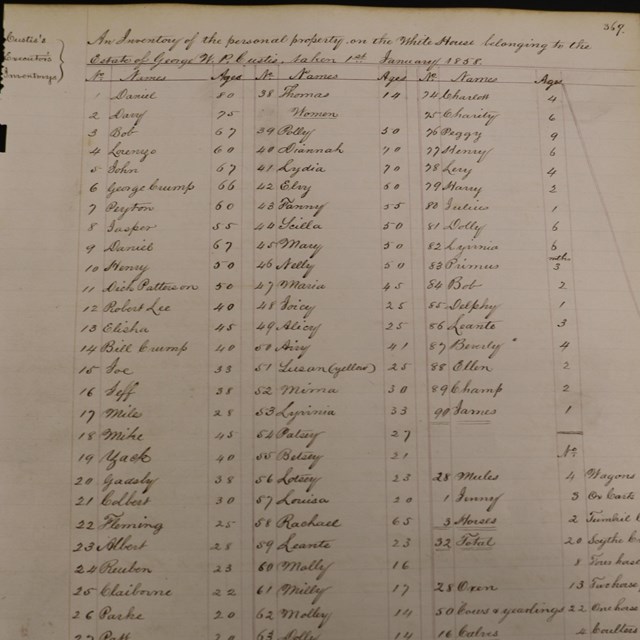 369.
Custis's
Executor's
Inventorys
An Inventory of the personal property on the White House belonging to the
Estate of George W. P. Custis, taken 1st January 1858.
No. Names Ages No. Names Ages No. Names Ages
1 Daniel 80 38 Thomas 14 74 Charlott 4
2 Davy 75 Women 75 Charity 6
3 Bob 67 39 Polly 50 76 Peggy 9
4 Lorenzo 60 40 Duannah 70 77 Henry 6
5 John 67 41 Lydia 70 78 Levy 4
6 George Crump 66 42 Elvy 60 79 Harry 2
7 Peyton 60 43 Fanny 55 80 Julius 1
8 Jasper 55 44 Scilla 50 81 Dolly 6
9 Daniel 67 45 Mary 50 82 Lyrinia 6
10 Henry 50 46 Nelly 50 83 Primus mths 3
11 Dick Patterson 50 47 Maria 45 84 Bob 2
12 Robert Lee 40 48 Joicy 25 85 Delphy 1
13 Elisha 45 49 Alicy 25 86 Leante 3
14 Bill Crump 40 50 Airy 41 87 Beverly 4
15 Joe 33 51 Susan (yellow) 25 88 Ellen 2
16 Jeff 38 52 Mima 30 89 Champ 2
17 Mile 28 53 Lyrinia 33 90 James 1
18 Mike 45 54 Patsey 27
19 Yack 40 55 Betsey 21 No.
20 Gadsby 38 56 Lotsey 23 28 Mules 4 Wagons
21 Colbert 30 57 Louisa 20 1 Jenny 3 Ox Carts
22 Fleming 25 58 Rachael 65 3 Horses 2 Tumbril
23 Albert 28 59 Leante 23 32 Total 20 Scythe
24 Reuben 23 60 Molly 16 8
25 Claiborne 22 61 Milly 17 28 Oxen 13 Two horse
26 Parke 20 62 Molley 14 50 Cows & yearlings 22 One horse
27 63 Dolly 14 16 Calves 4 Coulters